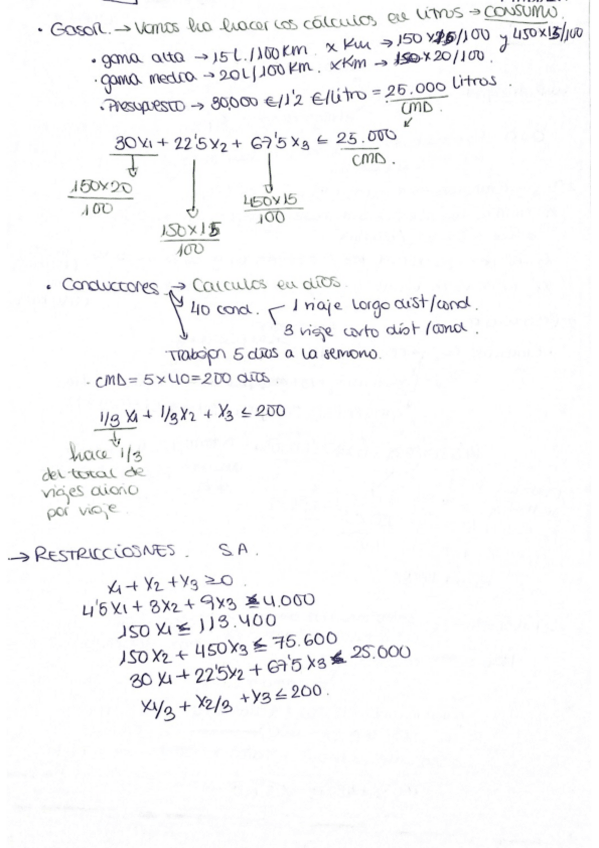 • Gasor. → Vamos ha hacer los cálculos en litros → CONSUMO.
• gama alta → 15 L./100 Km. x Km → 150 x 15/100 y 450x15/100
• gama media → 20L/100 Km. x Km → 150 x 20/100.
• Presupuesto → 30,000 €/1'2 €/litro = 25.000 litros.
CMD.
30x1 + 22'5x2 + 67'5x3 ≤ 25.000
CMD.
150x20
100
150x15
100
450x15
100
• Conductores → Calculos en días.
40 cond. 1 viaje largo dist/cond.
3 viaje corto dist/cond.
Trabajan 5 días a la semana.
• CMD = 5x40 = 200 días.
1/3 x1 + 1/3 x2 + x3 ≤ 200
hace 1/3
del total de
viajes diario
por viaje.
→ RESTRICCIOSNES. S.A.
x1 + x2 + x3 ≥ 0.
4'5x1 + 3x2 + 9x3 ≤ 4.000
150 x1 ≤ 113.400
150x2 + 450x3 ≤ 75.600
30 x1 + 22'5x2 + 67'5 x3 ≤ 25.000
x1/3 + x2/3 + x3 ≤ 200.